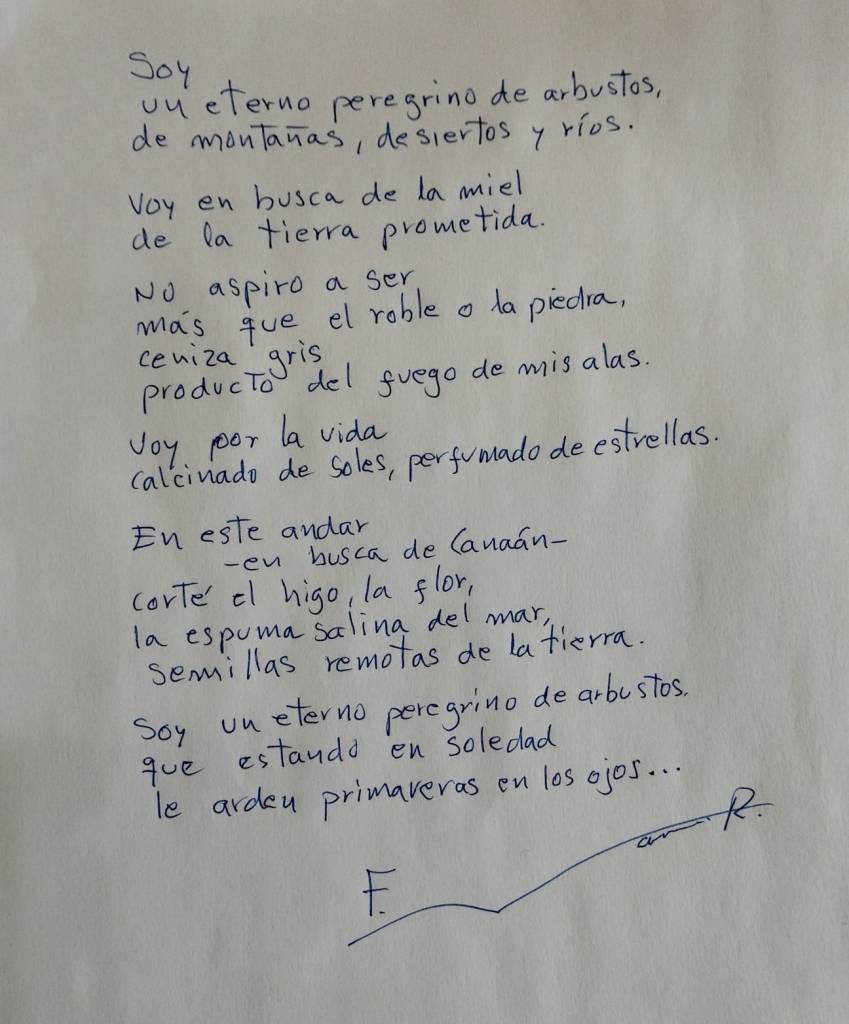 Soy
un eterno peregrino de arbustos,
de montañas, desiertos y ríos.
Voy en busca de la miel
de la tierra prometida.
No aspiro a ser
más que el roble o la piedra,
ceniza gris
producto del fuego de mis alas.
Voy por la vida
calcinado de soles, perfumado de estrellas.
En este andar
-en busca de Canaán-
corté el higo, la flor,
la espuma salina del mar,
semillas remotas de la tierra.
Soy un eterno peregrino de arbustos.
que estando en soledad
le arden primaveras en los ojos...
F. R.